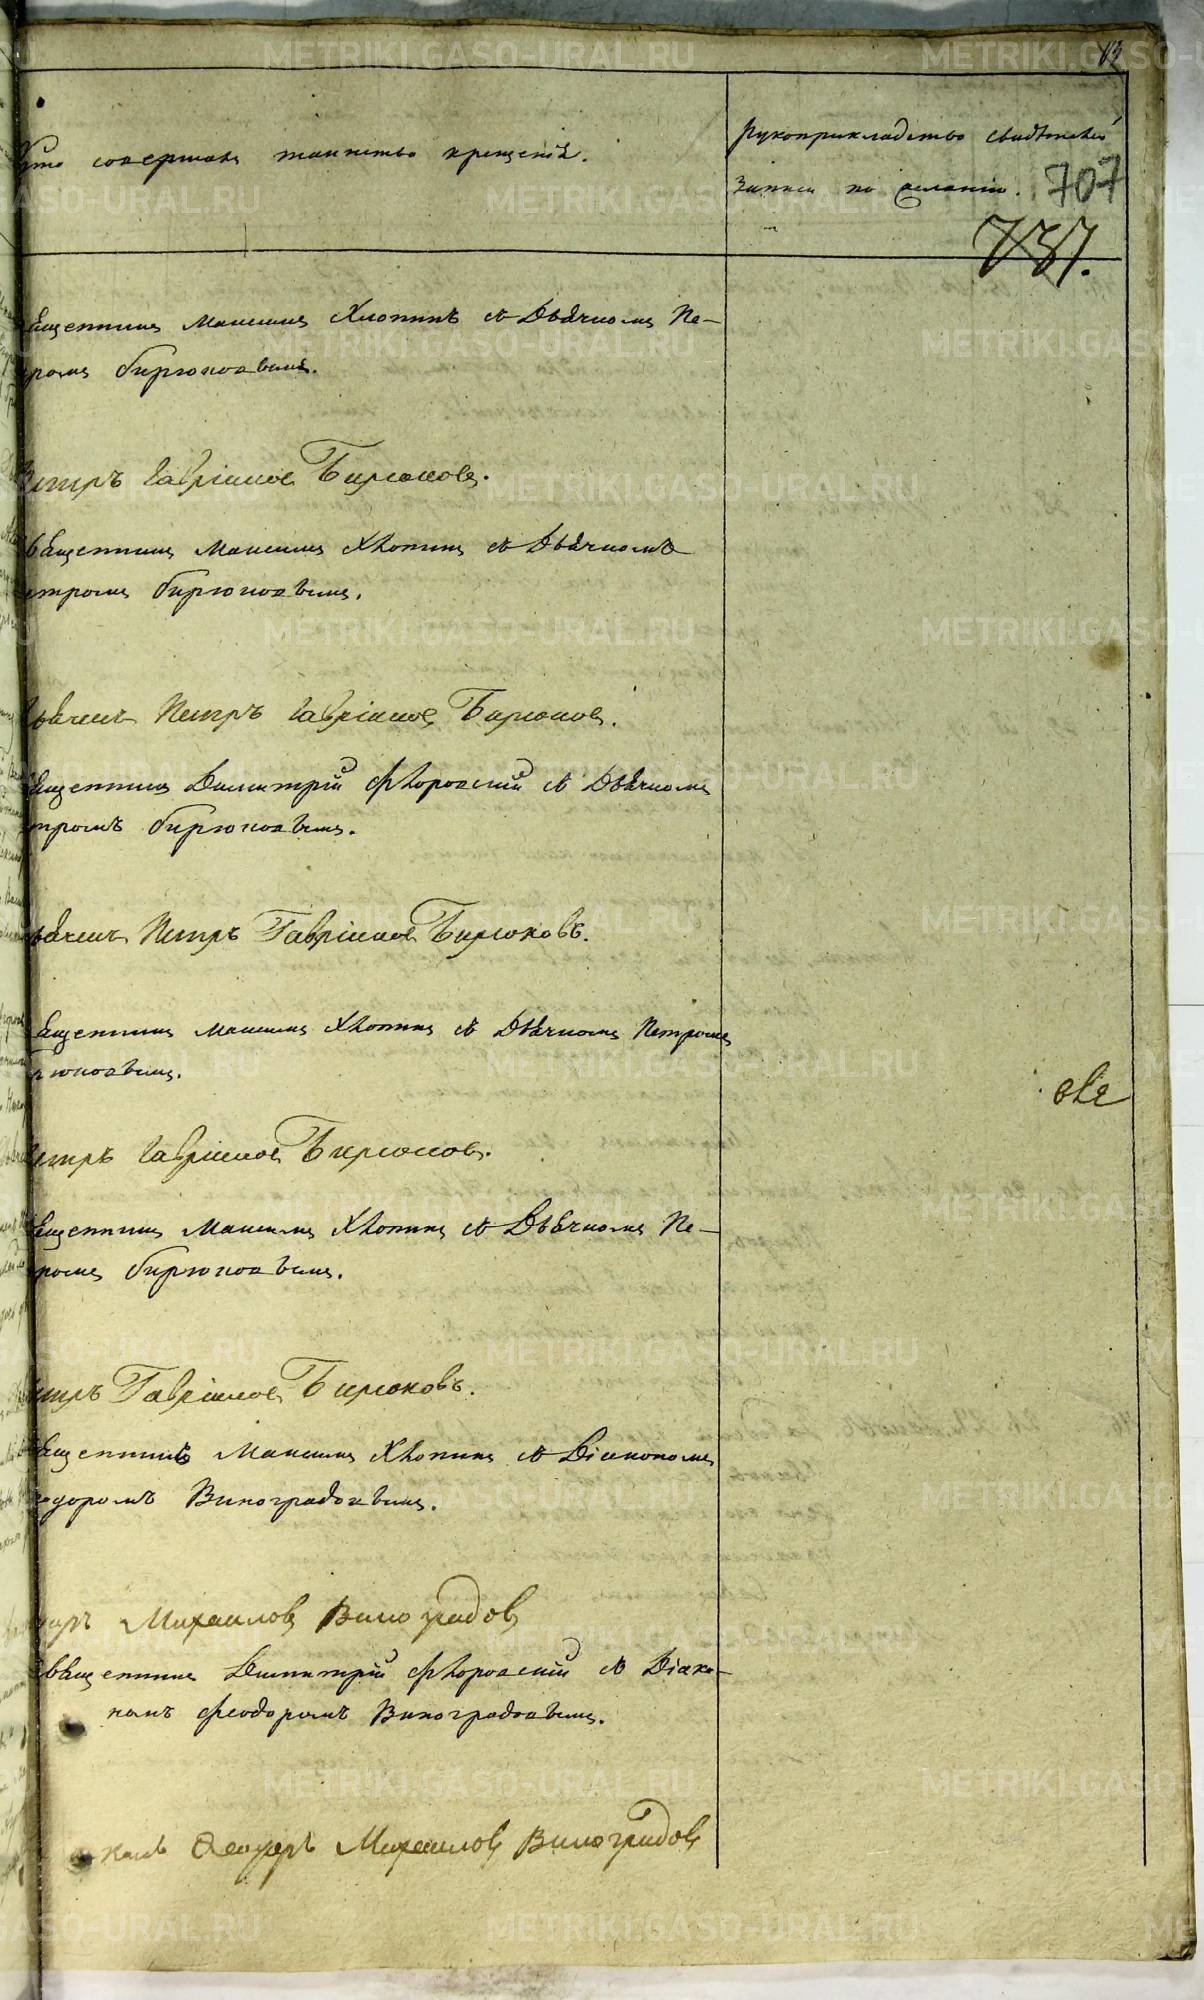 13
Кто совершалъ таинство крещенія.
Рукоприкладство свидѣтелей
записи по желанію. 707
737.
Священникъ Максимъ Хлопинъ съ Дьячкомъ Пе-
тромъ Бирюковымъ.
Петръ Гавріиловъ Бирюковъ.
Священникъ Максимъ Хлопинъ съ Дьячкомъ
Петромъ Бирюковымъ.
Дьячекъ Петръ Гавріиловъ Бирюковъ.
Священникъ Димитрій Флоровскій съ Дьячкомъ
Петромъ Бирюковымъ.
Дьячекъ Петръ Гавріиловъ Бирюковъ.
Священникъ Максимъ Хлопинъ съ Дьячкомъ Петромъ
Бирюковымъ.
Петръ Гавріиловъ Бирюковъ.
Священникъ Максимъ Хлопинъ съ Дьячкомъ Пе-
тромъ Бирюковымъ.
Петръ Гавріиловъ Бирюковъ.
Священникъ Максимъ Хлопинъ съ Діакономъ
Ѳеодоромъ Виноградовымъ.
Михаиловъ Виноградовъ
Священникъ Димитрій Флоровскій съ Діако-
номъ Феодоромъ Виноградовымъ.
Ѳеодоръ Михаиловъ Виноградовъ
METRIKI.GASO-URAL.RU